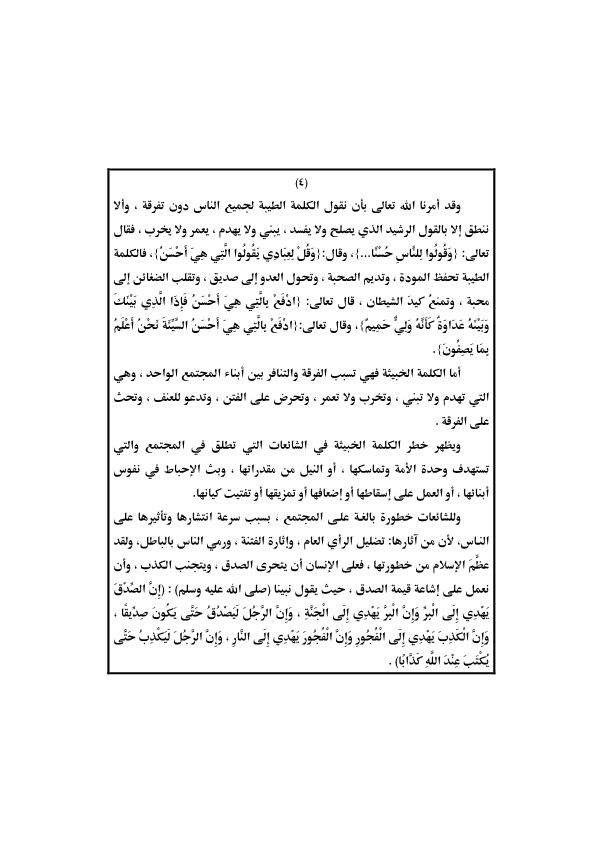 (٤)
وقد أمرنا الله تعالى بأن نقول الكلمة الطيبة لجميع الناس دون تفرقة ، وألا
ننطق إلا بالقول الرشيد الذي يصلح ولا يفسد ، يبني ولا يهدم ، يعمر ولا يخرب ، فقال
تعالى: {وَقُولُوا لِلنَّاسِ حُسْنًا...}، وقال:{وَقُلْ لِعِبَادِي يَقُولُوا الَّتِي هِيَ أَحْسَنُ}، فالكلمة
الطيبة تحفظ المودة ، وتديم الصحبة ، وتحول العدو إلى صديق ، وتقلب الضغائن إلى
محبة ، وتمنعُ كيدَ الشيطان ، قال تعالى: {ادْفَعْ بِالَّتِي هِيَ أَحْسَنُ فَإِذَا الَّذِي بَيْنَكَ
وَبَيْنَهُ عَدَاوَةٌ كَأَنَّهُ وَلِيٌّ حَمِيمٌ}، وقال تعالى:{ادْفَعْ بِالَّتِي هِيَ أَحْسَنُ السَّيِّئَةَ نَحْنُ أَعْلَمُ
بِمَا يَصِفُونَ}.
أما الكلمة الخبيثة فهي تسبب الفرقة والتنافر بين أبناء المجتمع الواحد ، وهي
التي تهدم ولا تبني ، وتخرب ولا تعمر ، وتحرض على الفتن ، وتدعو للعنف ، وتحث
على الفرقة .
ويظهر خطر الكلمة الخبيثة في الشائعات التي تطلق في المجتمع والتي
تستهدف وحدة الأمة وتماسكها ، أو النيل من مقدراتها ، وبث الإحباط في نفوس
أبنائها ، أو العمل على إسقاطها أو إضعافها أو تمزيقها أو تفتيت كيانها.
وللشائعات خطورة بالغة على المجتمع ، بسبب سرعة انتشارها وتأثيرها على
الناس، لأن من آثارها: تضليل الرأي العام ، وإثارة الفتنة ، ورمي الناس بالباطل، ولقد
عظَّمَ الإسلام من خطورتها ، فعلى الإنسان أن يتحرى الصدق ، ويتجنب الكذب ، وأن
نعمل على إشاعة قيمة الصدق ، حيث يقول نبينا (صلى الله عليه وسلم) : (إِنَّ الصِّدْقَ
يَهْدِي إِلَى الْبِرِّ وَإِنَّ الْبِرَّ يَهْدِي إِلَى الْجَنَّةِ ، وَإِنَّ الرَّجُلَ لَيَصْدُقُ حَتَّى يَكُونَ صِدِّيقًا ،
وَإِنَّ الْكَذِبَ يَهْدِي إِلَى الْفُجُورِ وَإِنَّ الْفُجُورَ يَهْدِي إِلَى النَّارِ ، وَإِنَّ الرَّجُلَ لَيَكْذِبُ حَتَّى
يُكْتَبَ عِنْدَ اللَّهِ كَذَّابًا) .